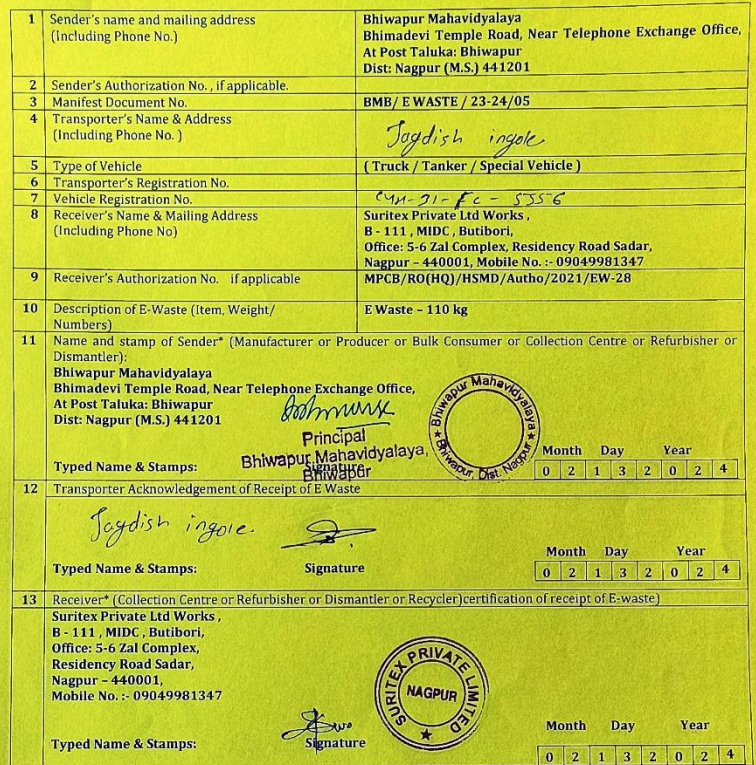 1 Sender's name and mailing address
(Including Phone No.)
Bhiwapur Mahavidyalaya
Bhimadevi Temple Road, Near Telephone Exchange Office,
At Post Taluka: Bhiwapur
Dist: Nagpur (M.S.) 441201
2 Sender's Authorization No. , if applicable.
3 Manifest Document No. BMB/ E WASTE / 23-24/05
4 Transporter's Name & Address
(Including Phone No. )
Jagdish ingole
5 Type of Vehicle ( Truck / Tanker / Special Vehicle )
6 Transporter's Registration No.
7 Vehicle Registration No.
8 Receiver's Name & Mailing Address
(Including Phone No)
Suritex Private Ltd Works ,
B - 111 , MIDC , Butibori,
Office: 5-6 Zal Complex, Residency Road Sadar,
Nagpur – 440001, Mobile No. :- 09049981347
9 Receiver's Authorization No. if applicable MPCB/RO(HQ)/HSMD/Autho/2021/EW-28
10 Description of E-Waste (Item, Weight/
Numbers)
E Waste – 110 kg
11 Name and stamp of Sender* (Manufacturer or Producer or Bulk Consumer or Collection Centre or Refurbisher or
Dismantler):
Bhiwapur Mahavidyalaya
Bhimadevi Temple Road, Near Telephone Exchange Office,
At Post Taluka: Bhiwapur
Dist: Nagpur (M.S.) 441201
Principal
Bhiwapur Mahavidyalaya,
Bhiwapur
★ Bhiwapur Mahavidyalaya ★ Bhiwapur, Dist. Nagpur
Typed Name & Stamps: Signature
Month Day Year
0 2 1 3 2 0 2 4
12 Transporter Acknowledgement of Receipt of E Waste
Jagdish ingole
Typed Name & Stamps: Signature
Month Day Year
0 2 1 3 2 0 2 4
13 Receiver* (Collection Centre or Refurbisher or Dismantler or Recycler)certification of receipt of E-waste)
Suritex Private Ltd Works ,
B - 111 , MIDC , Butibori,
Office: 5-6 Zal Complex,
Residency Road Sadar,
Nagpur – 440001,
Mobile No. :- 09049981347
SURITEX PRIVATE LIMITED ★
NAGPUR
Typed Name & Stamps: Signature
Month Day Year
0 2 1 3 2 0 2 4